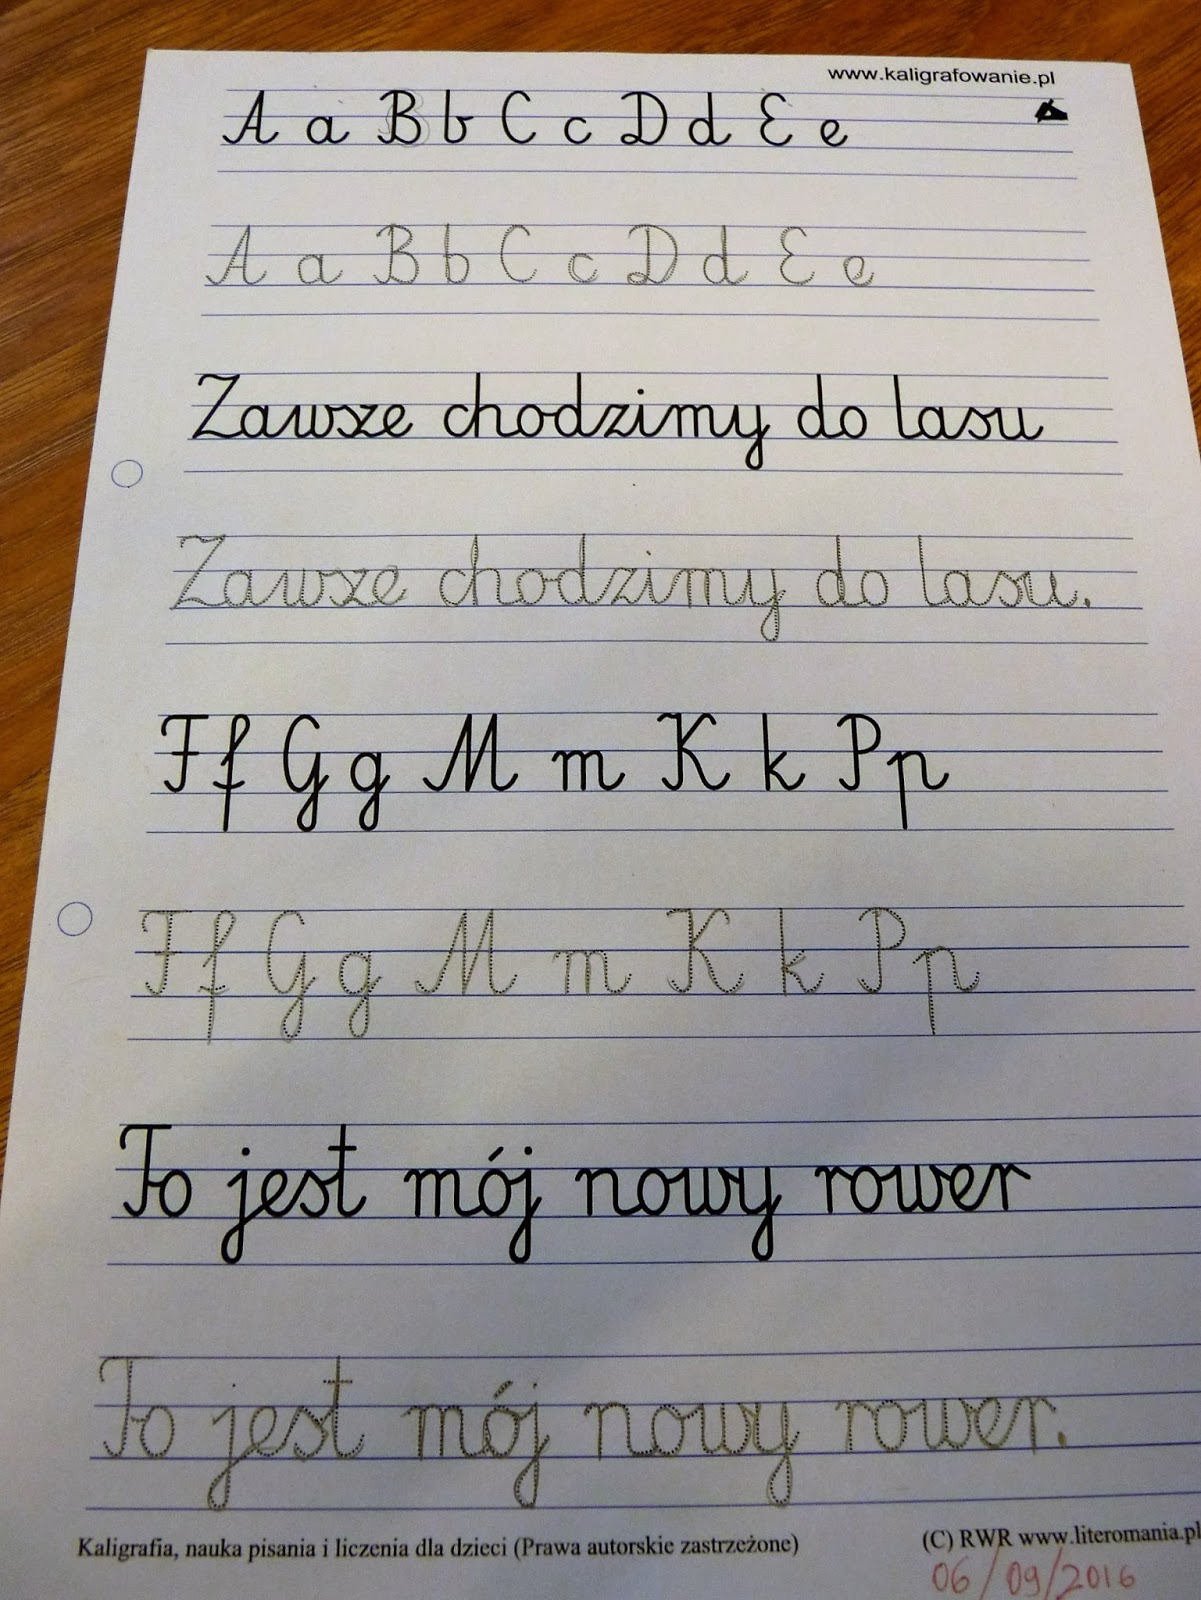 www.kaligrafowanie.pl
A a B b C c D d E e
A a B b C c D d E e
Zawsze chodzimy do lasu
Zawsze chodzimy do lasu.
F f G g M m K k P p
F f G g M m K k P p
To jest mój nowy rower
To jest mój nowy rower.
Kaligrafia, nauka pisania i liczenia dla dzieci (Prawa autorskie zastrzeżone) (C) RWR www.literomania.pl
06/09/2016